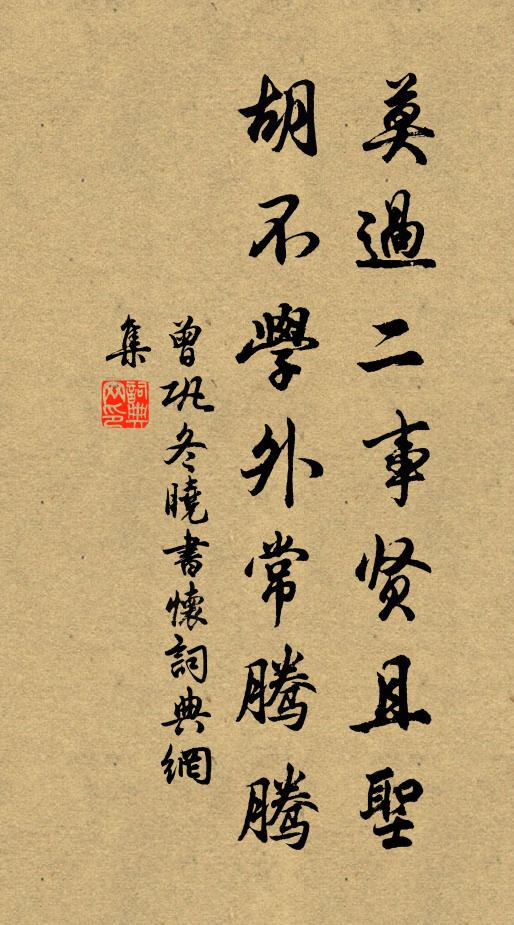 莫過二事贤且聖
胡不學外常腾腾
曾巩冬曉書懷詞典網
集
詞典网印